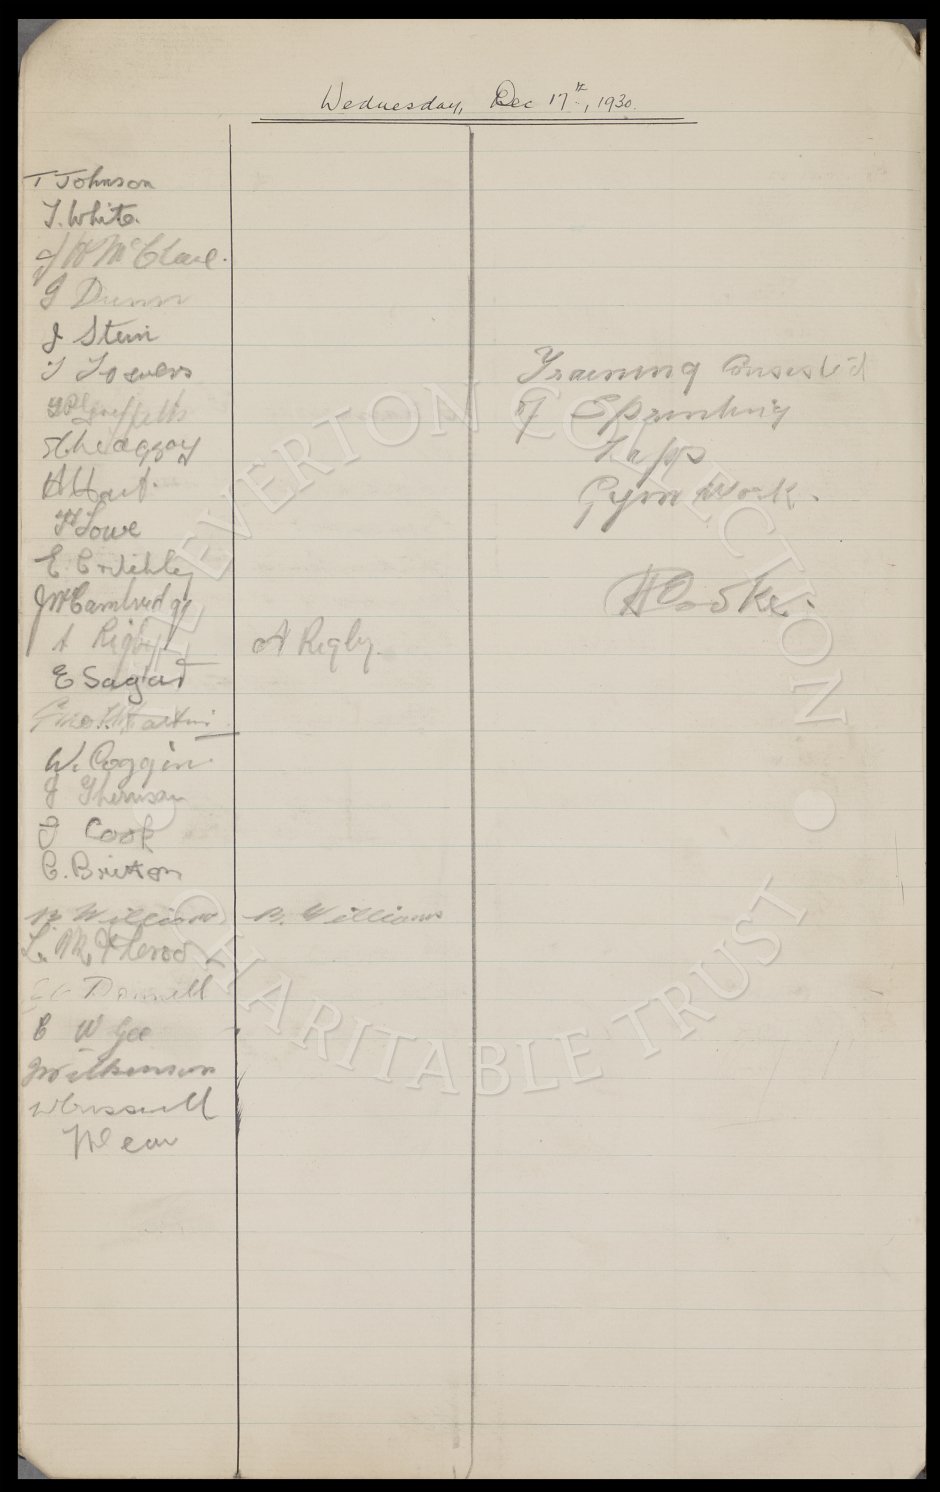 Wednesday, Dec 17th, 1930.
T Johnson
T. White.
J W McClure.
J Dunn
J Stein
T Towers
T P Griffiths
S Chedgzoy
H Hart.
H Lowe
E Critchley
J McCambridge
A Rigby A Rigby.
E Sagar
Geo. Martin
W. Coggin
J Thomson
J Cook
C. Britton
B. Williams B. Williams
L.
C W Gee
J Wilkinson
W Cresswell
W Dean
Training Consisted
of Sprinting
Lapps
Gym Work.
H Cooke.
THE EVERTON COLLECTION
CHARITABLE TRUST